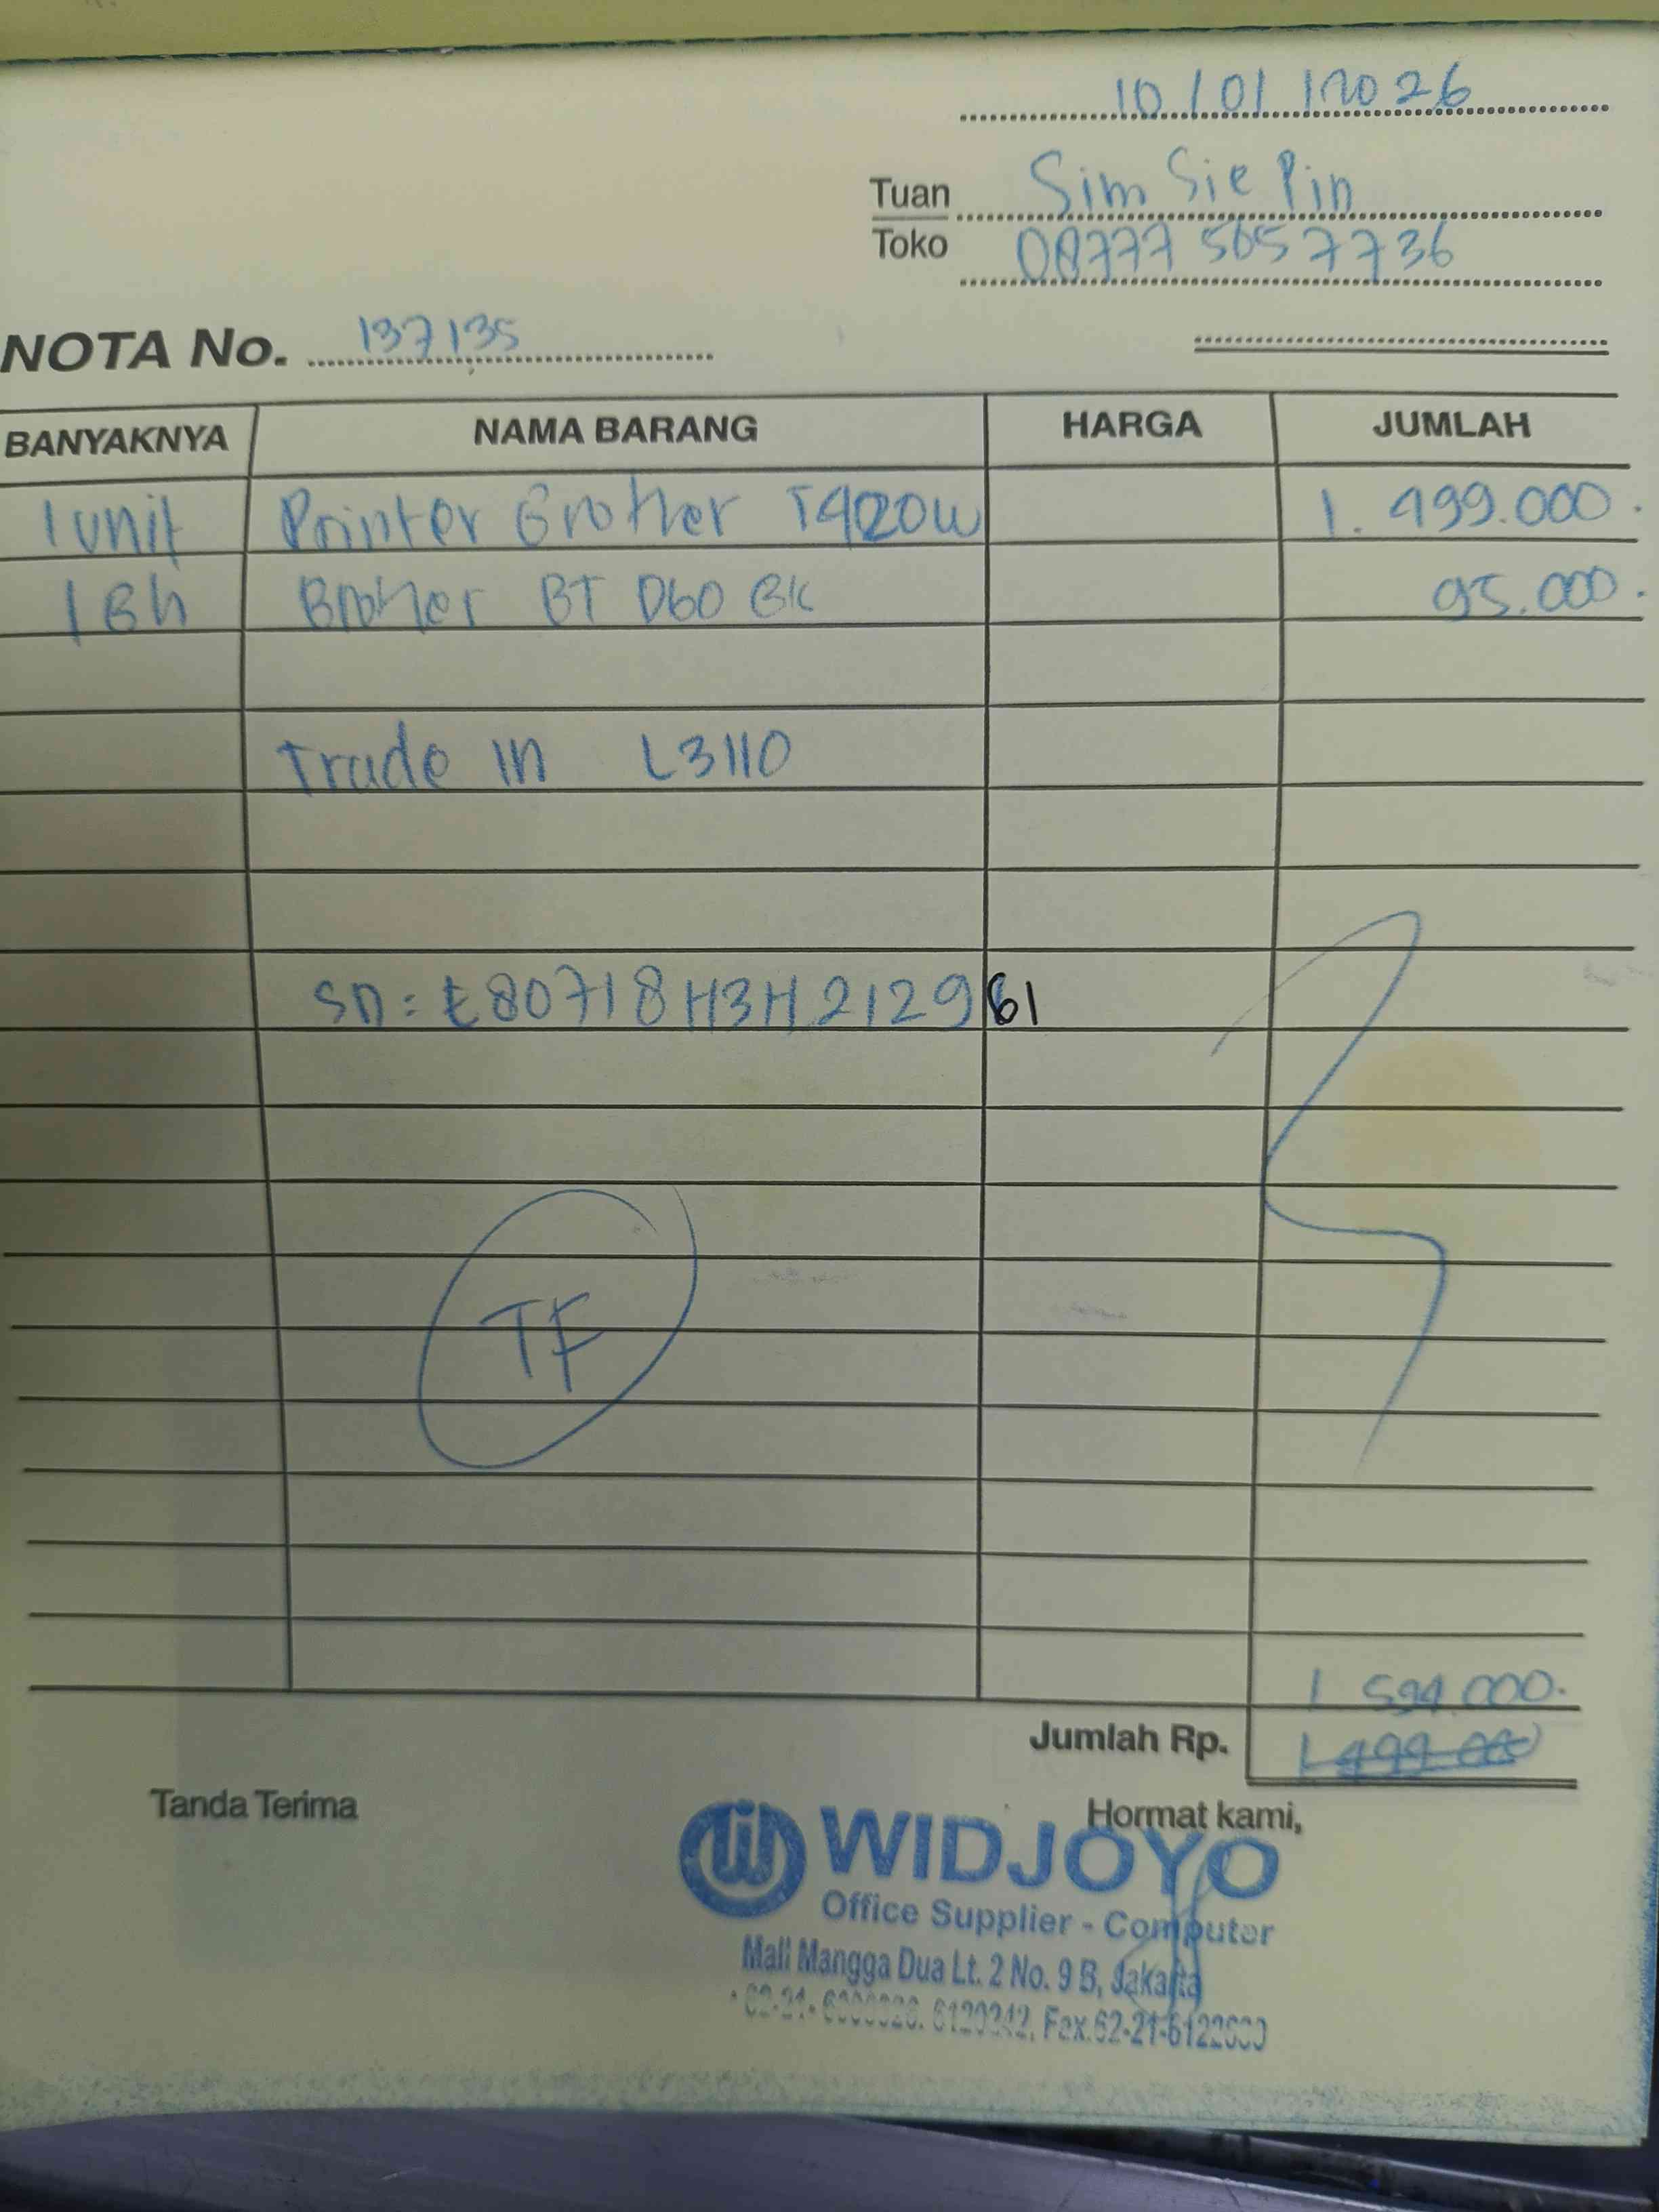 10/01/2026
Tuan Sim Sie Pin
Toko 08777 5657736
NOTA No. 137135
BANYAKNYA NAMA BARANG HARGA JUMLAH
1 unit Printer Brother T420W 1.499.000
1 Bh Brother BT D60 BK 95.000
Trade In L3110
SN: E80718H3H212961
TF
1 594.000
Jumlah Rp. 1 499.000
Tanda Terima Hormat kami,
WIDJOYO
Office Supplier - Computer
Mall Mangga Dua Lt. 2 No. 9 B, Jakarta
6120242, Fax.